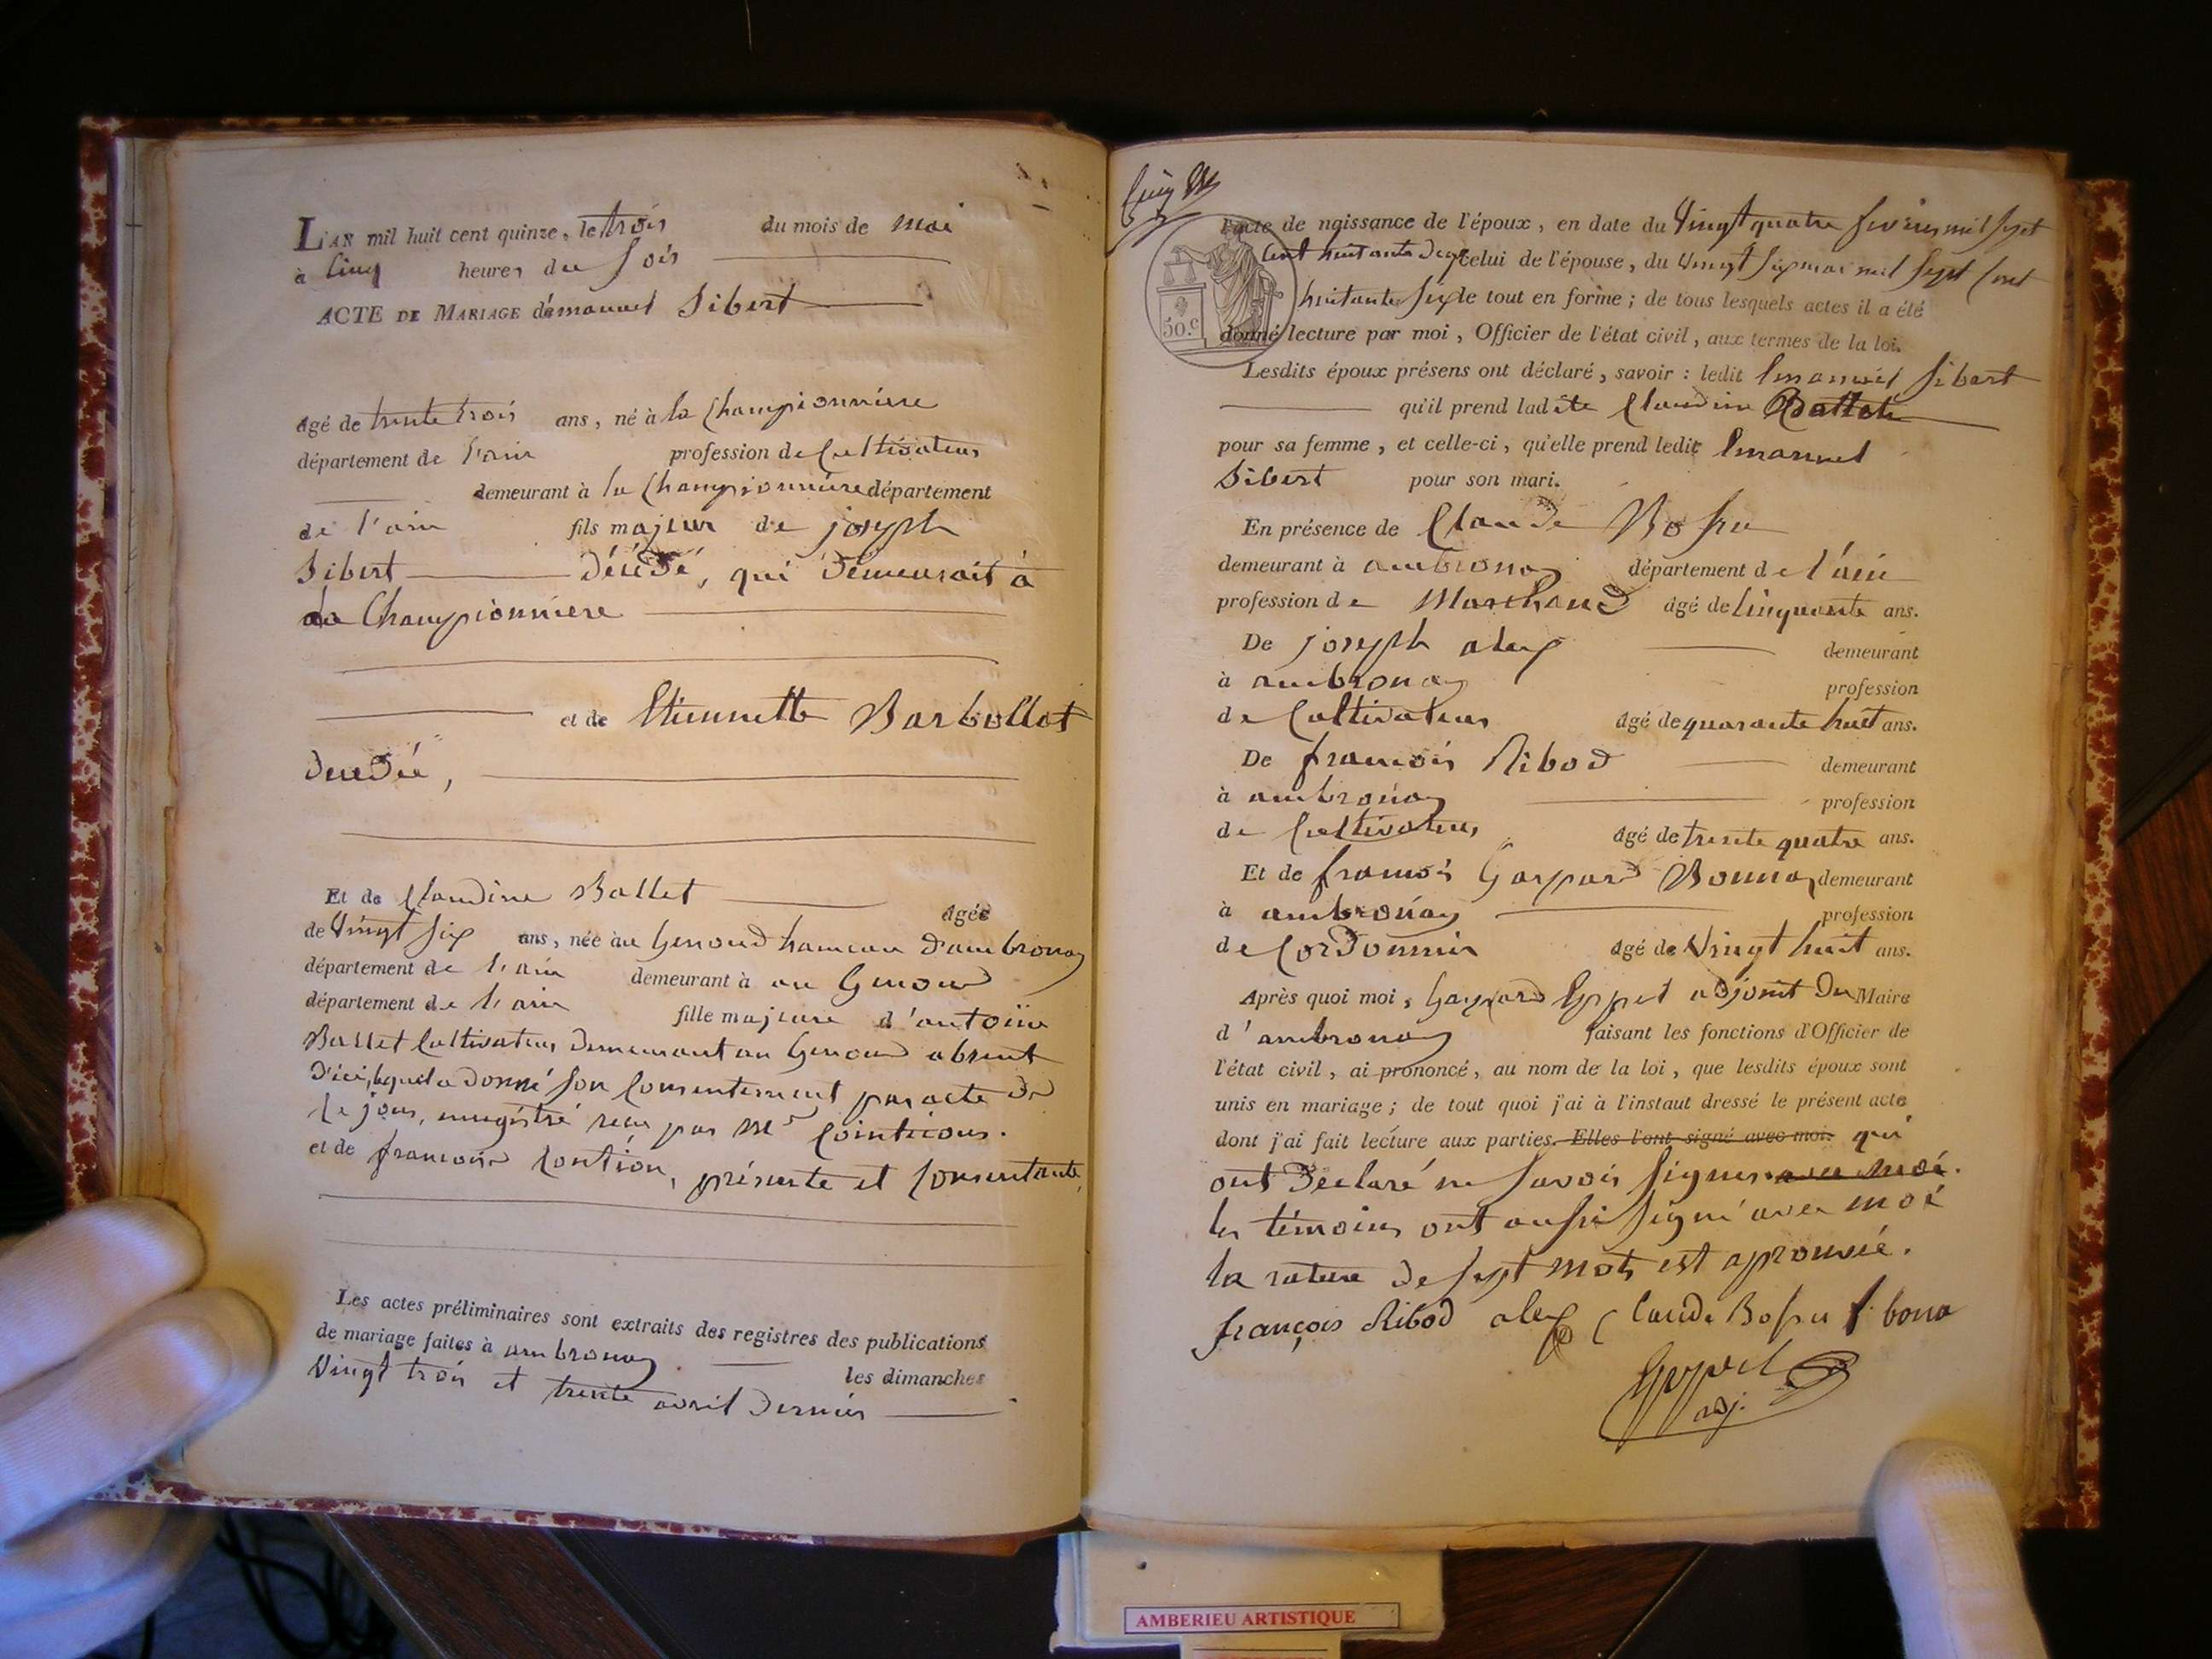 L'AN mil huit cent quinze, le trois du mois de mai
à cinq heures du soir
ACTE DE MARIAGE d'émanuel Sibert
âgé de trente trois ans, né à la Championnière
département de l'ain profession de Cultivateur
demeurant à la Championnière département
de l'ain fils majeur de joseph
Sibert décédé, qui demeurait à
la Championniere
et de Etiennette Barbollat
décédée,
Et de Claudine Ballet âgée
de Vingt six ans, née au Genoud hameau d'ambronay
département de l'ain demeurant à au Genoud
département de l'ain fille majeure d'antoine
Ballet Cultivateur demeurant au Genoud absent
d'ici, lequel a donné son Consentement par acte de
ce jour, enregistré reçu par Me
et de françoise présente et Consentante,
Les actes préliminaires sont extraits des registres des publications
de mariage faites à ambronay les dimanches
Vingt trois et trente avril dernier
l'acte de naissance de l'époux, en date du Vingt quatre fevrier mil sept
Cent huitante deux celui de l'épouse, du Vingt six mai mil sept Cent
huitante six le tout en forme; de tous lesquels actes il a été
50.c
donné lecture par moi, Officier de l'état civil, aux termes de la loi.
Lesdits époux présens ont déclaré, savoir: ledit Emanuel Sibert
qu'il prend ladite Claudine Ballet
pour sa femme, et celle-ci, qu'elle prend ledit Emanuel
Sibert pour son mari.
En présence de Claude Bossu
demeurant à ambronay département de l'ain
profession de Marchand âgé de Cinquante ans.
De joseph alex demeurant
à ambronay profession
de Cultivateur âgé de quarante huit ans.
De francois Ribod demeurant
à ambronay profession
de Cultivateur âgé de trente quatre ans.
Et de francois Gaspard Bonnay demeurant
à ambronay profession
de Cordonnier âgé de Vingt huit ans.
Après quoi moi, Gaspard adjoint du Maire
d'ambronay faisant les fonctions d'Officier de
l'état civil, ai prononcé, au nom de la loi, que lesdits époux sont
unis en mariage; de tout quoi j'ai à l'instant dressé le présent acte
dont j'ai fait lecture aux parties. Elles l'ont signé avec moi. qui
ont déclaré ne savoir signer avec moi.
les témoins ont aussi signé avec moi
la rature de sept mots est aprouvée.
françois Ribod alex Claude Bossu f bona
adj.
AMBERIEU ARTISTIQUE